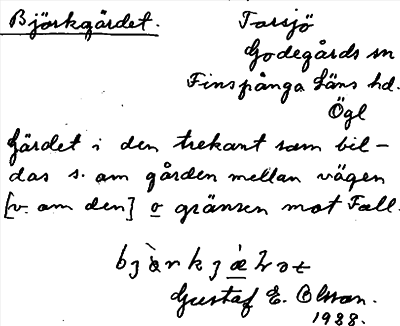 Björkgärdet.
Torsjö
Godegårds sn
Finspånga läns hd.
Ögl
Gärdet i den trekant som bil-
das s. om gården mellan vägen
[v. om den] o gränsen mot Fall.
Gustaf E. Olsson.
1988.